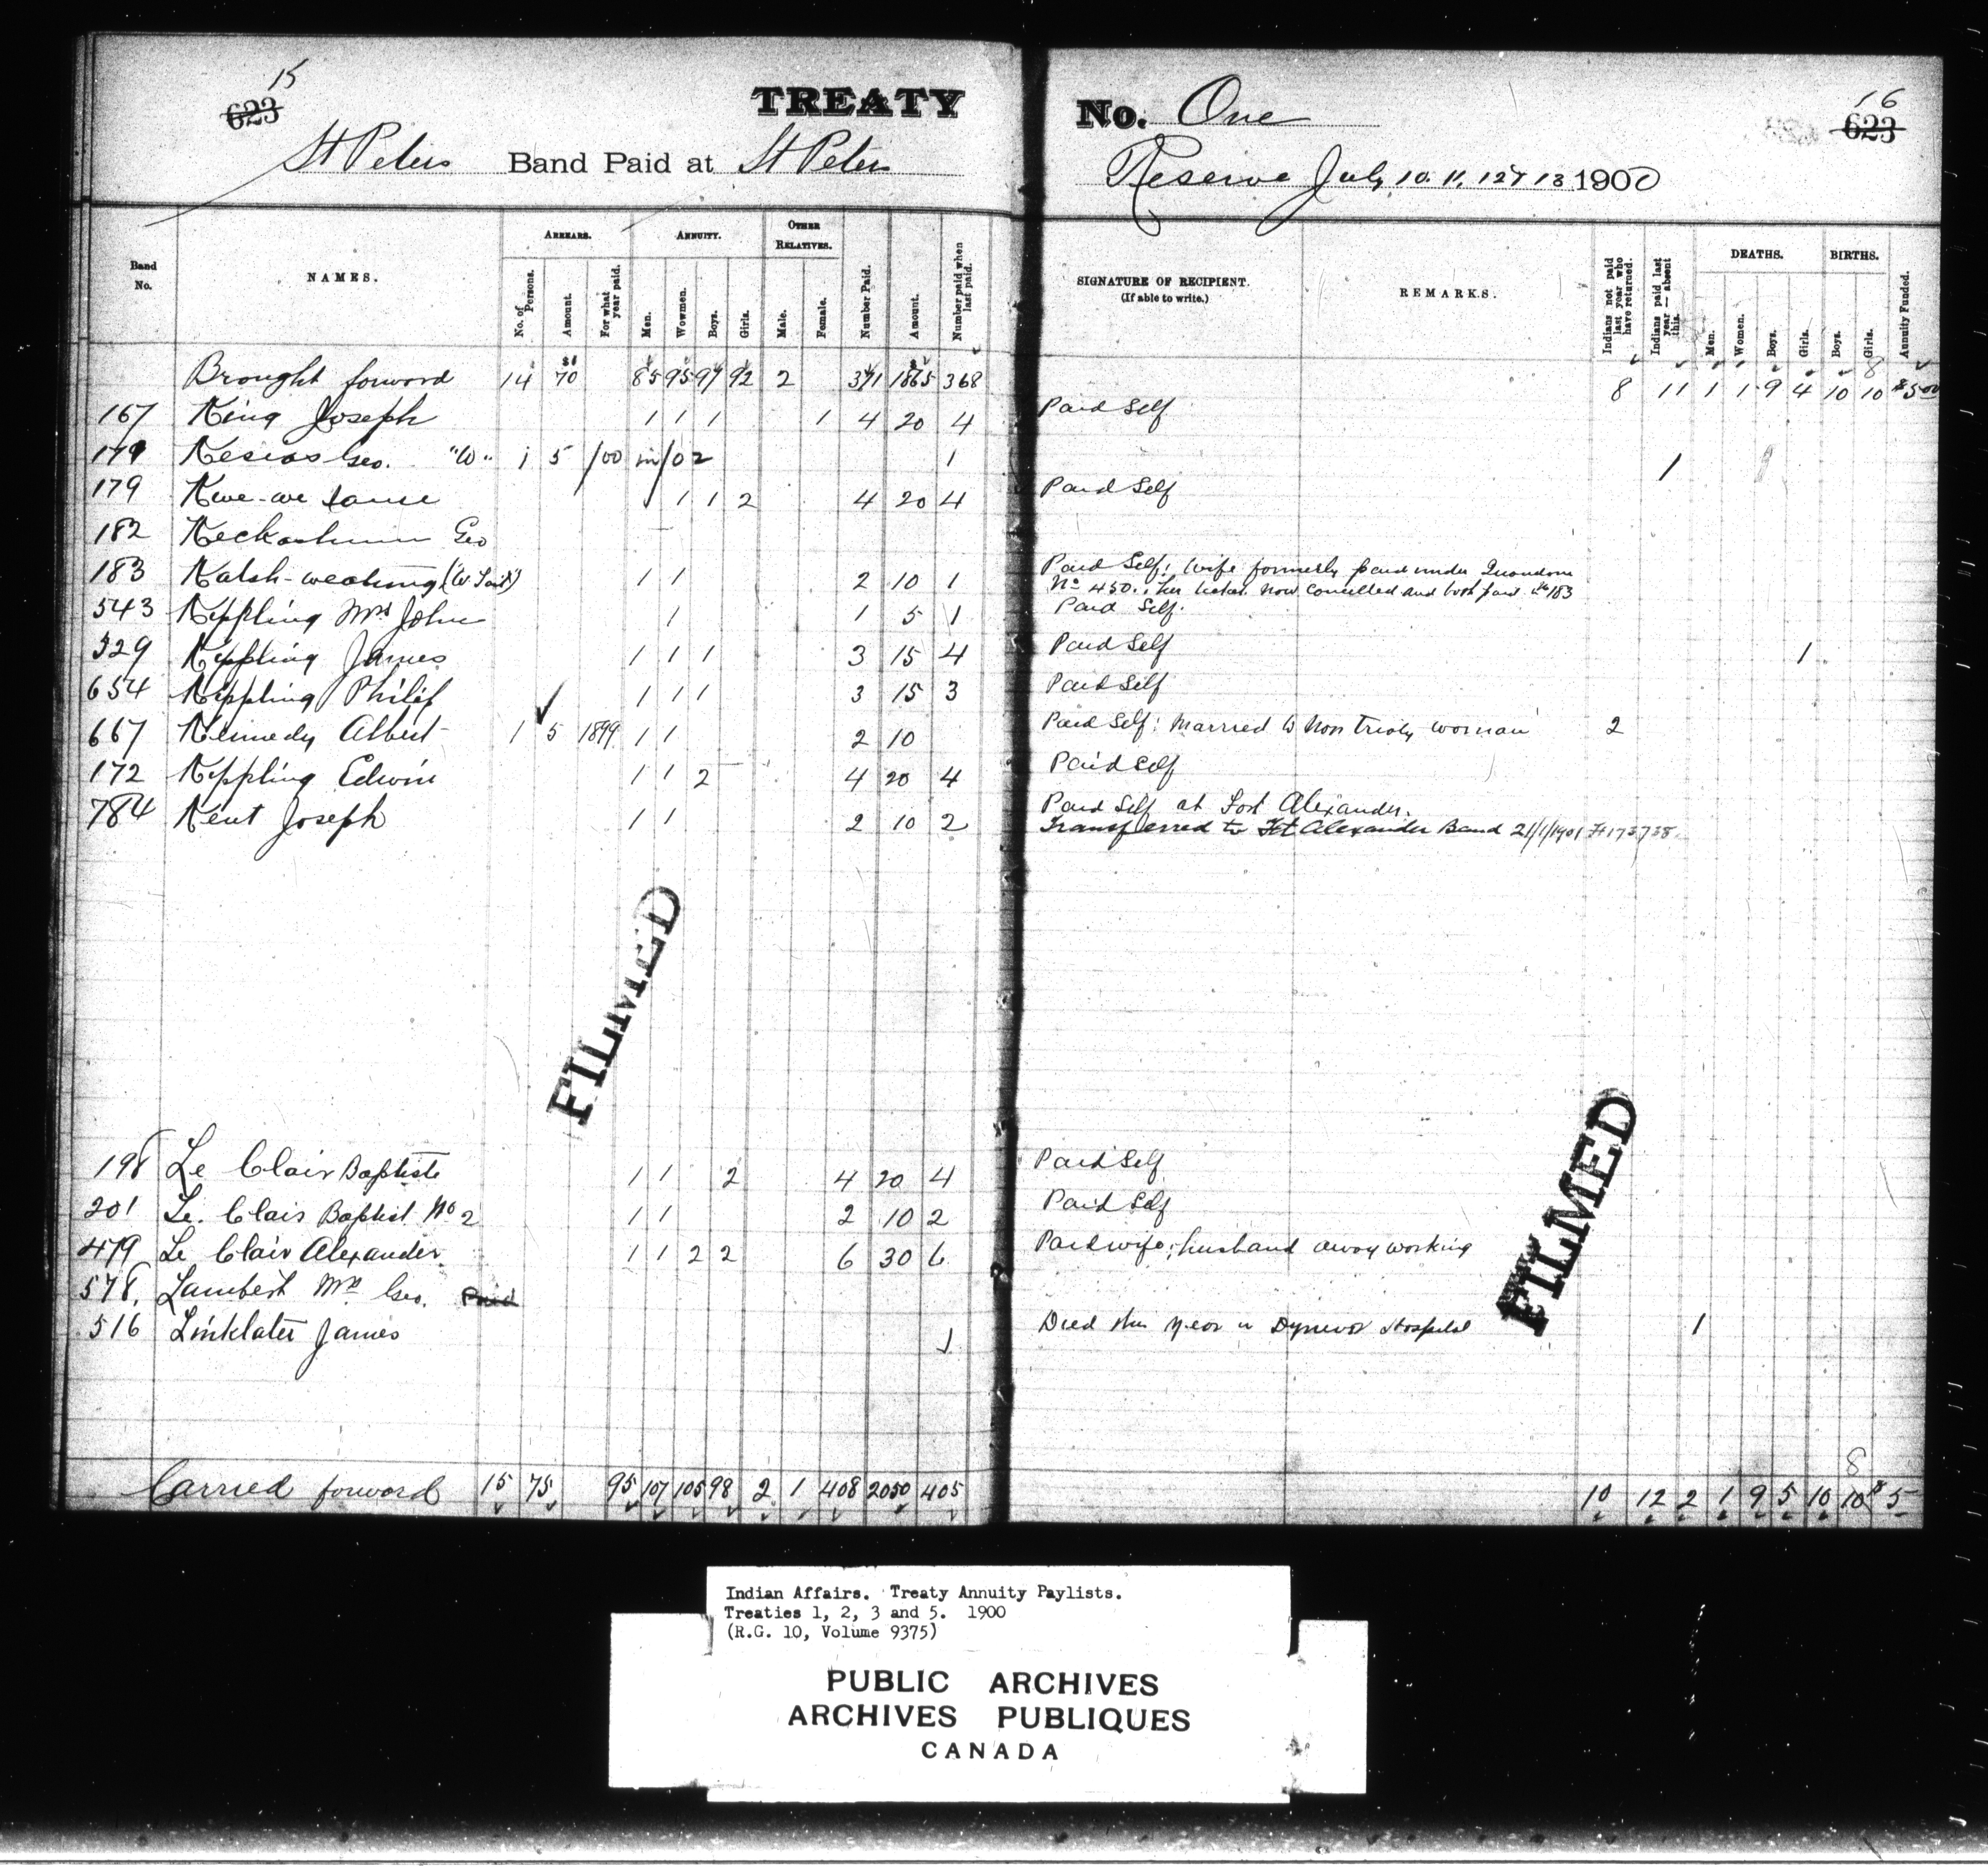 15
623
TREATY No. One
16
623
St Peters Band Paid at St Peters Reserve July 10. 11, 12 & 13 1900
Band No.
NAMES.
ARREARS.
No. of Persons.
Amount.
For what year paid.
ANNUITY.
Men.
Wowmen.
Boys.
Girls.
OTHER RELATIVES.
Male.
Female.
Number Paid.
Amount.
Number paid when last paid.
SIGNATURE OF RECIPIENT.
(If able to write.)
REMARKS.
Indians not paid last year who have returned.
Indians paid last year — absent this.
DEATHS.
Men.
Women.
Boys.
Girls.
BIRTHS.
Boys.
Girls.
Annuity Funded.
8
Brought forward 14 70 85 95 97 92 2 371 1865 368 8 11 1 1 9 4 10 10 $5.00
167 King Joseph 1 1 1 1 4 20 4 Paid Self
Geo. "W" 1 5 /00 in /02 1 1
179 1 1 2 4 20 4 Paid Self
182 Geo
183 1 1 2 10 1 Paid Self: Wife formerly paid under
No 450. Her ticket now cancelled and both paid No 183
543 Kippling Mrs John 1 1 5 1 Paid Self.
329 Kippling James 1 1 1 3 15 4 Paid Self 1
654 Kippling Philip 1 1 1 3 15 3 Paid Self
667 Kennedy Albert 1 5 1899 1 1 2 10 Paid Self: Married to Non Treaty woman 2
172 Kippling Edwin 1 1 2 4 20 4 Paid Self
784 Kent Joseph 1 1 2 10 2 Paid Self at Fort Alexander.
Transferred to Ft Alexander Band 21/1/1901
FILMED
FILMED
198 Le Clair Baptiste 1 1 2 4 20 4 Paid Self
201 Le. Clair Baptist No 2 1 1 2 10 2 Paid Self
479 Le Clair Alexander. 1 1 2 2 6 30 6 Paid wife; husband away working
578. Lambert Mrs Geo. Paid
516 Linklater James 1 Died this year in Dynevor Hospital 1
8
Carried forward 15 75 95 107 105 98 2 1 408 2050 405 10 12 2 1 9 5 10 10 $5
Indian Affairs. Treaty Annuity Paylists.
Treaties 1, 2, 3 and 5. 1900
(R.G. 10, Volume 9375)
PUBLIC ARCHIVES
ARCHIVES PUBLIQUES
CANADA